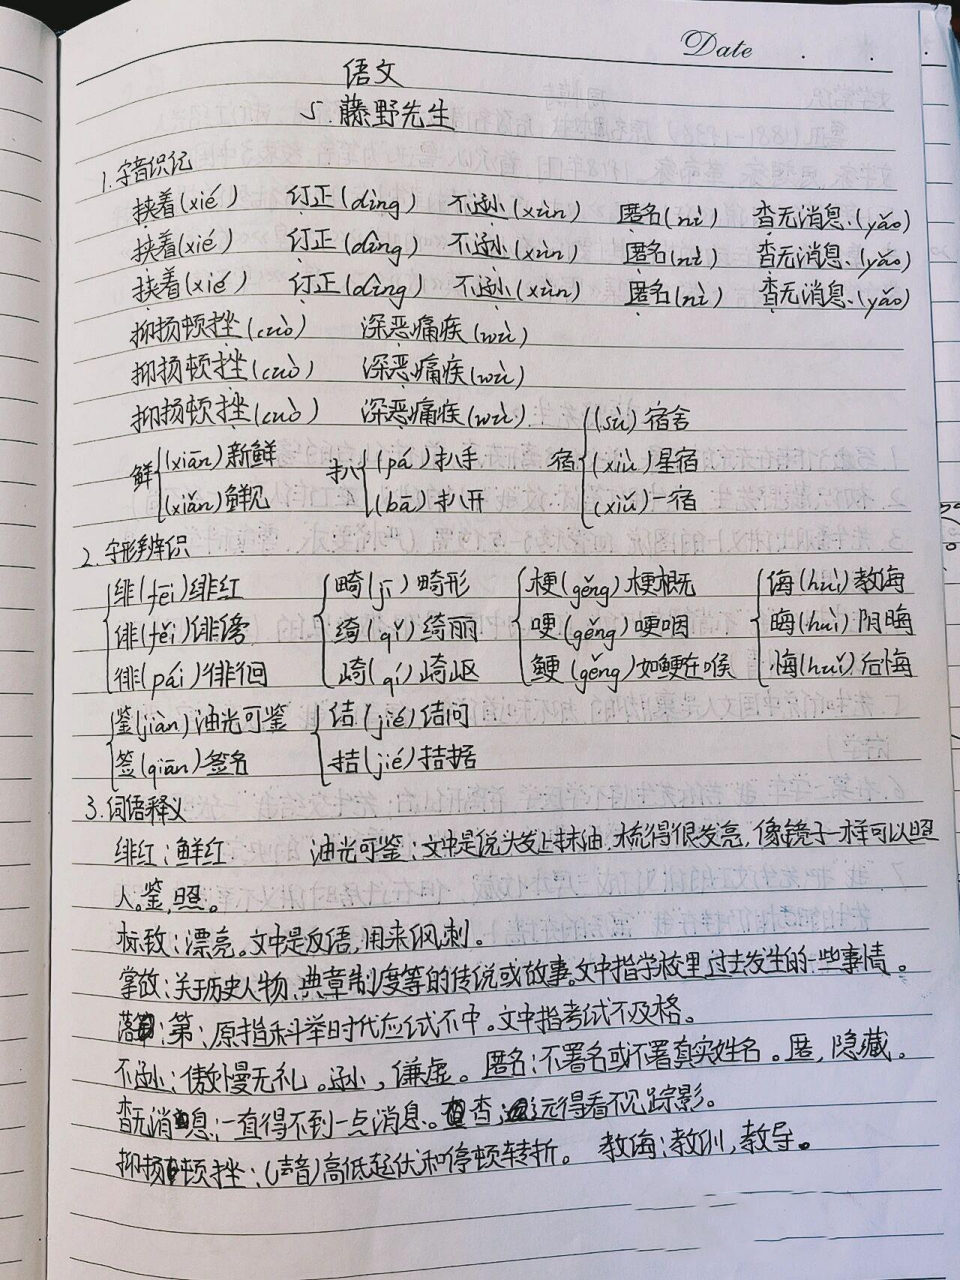 Date
语文
5.藤野先生
1.字音识记
挟着(xié) 订正(dìng) 不逊(xùn) 匿名(nì) 杳无消息(yǎo)
挟着(xié) 订正(dìng) 不逊(xùn) 匿名(nì) 杳无消息(yǎo)
挟着(xié) 订正(dìng) 不逊(xùn) 匿名(nì) 杳无消息(yǎo)
抑扬顿挫(cuò) 深恶痛疾(wù)
抑扬顿挫(cuò) 深恶痛疾(wù)
抑扬顿挫(cuò) 深恶痛疾(wù) (sù)宿舍
鲜 (xiān)新鲜 扒 (pá)扒手 宿 (xiù)星宿
(xiǎn)鲜见 (bā)扒开 (xiǔ)一宿
2.字形辨识
绯(fēi)绯红 畸(jī)畸形 梗(gěng)梗概 诲(huì)教诲
诽(fěi)诽谤 绮(qǐ)绮丽 哽(gěng)哽咽 晦(huì)阴晦
徘(pái)徘徊 崎(qí)崎岖 鲠(gěng)如鲠在喉 悔(huǐ)后悔
鉴(jiàn)油光可鉴 诘(jié)诘问
签(qiān)签名 拮(jié)拮据
3.词语释义
绯红:鲜红 油光可鉴:文中是说头发上抹油,梳得很发亮,像镜子一样可以照
人。鉴,照。
标致:漂亮。文中是反语,用来讽刺。
掌故:关于历史人物、典章制度等的传说或故事。文中指学校里过去发生的一些事情。
落第:原指科举时代应试不中。文中指考试不及格。
不逊:傲慢无礼。逊,谦虚。 匿名:不署名或不署真实姓名。匿,隐藏。
杳无消息:一直得不到一点消息。杳:远得看不见踪影。
抑扬顿挫:(声音)高低起伏和停顿转折。 教诲:教训,教导。